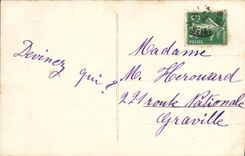 Devinez qui?
Madame
M. Herouard
221 route Nationale
Graville